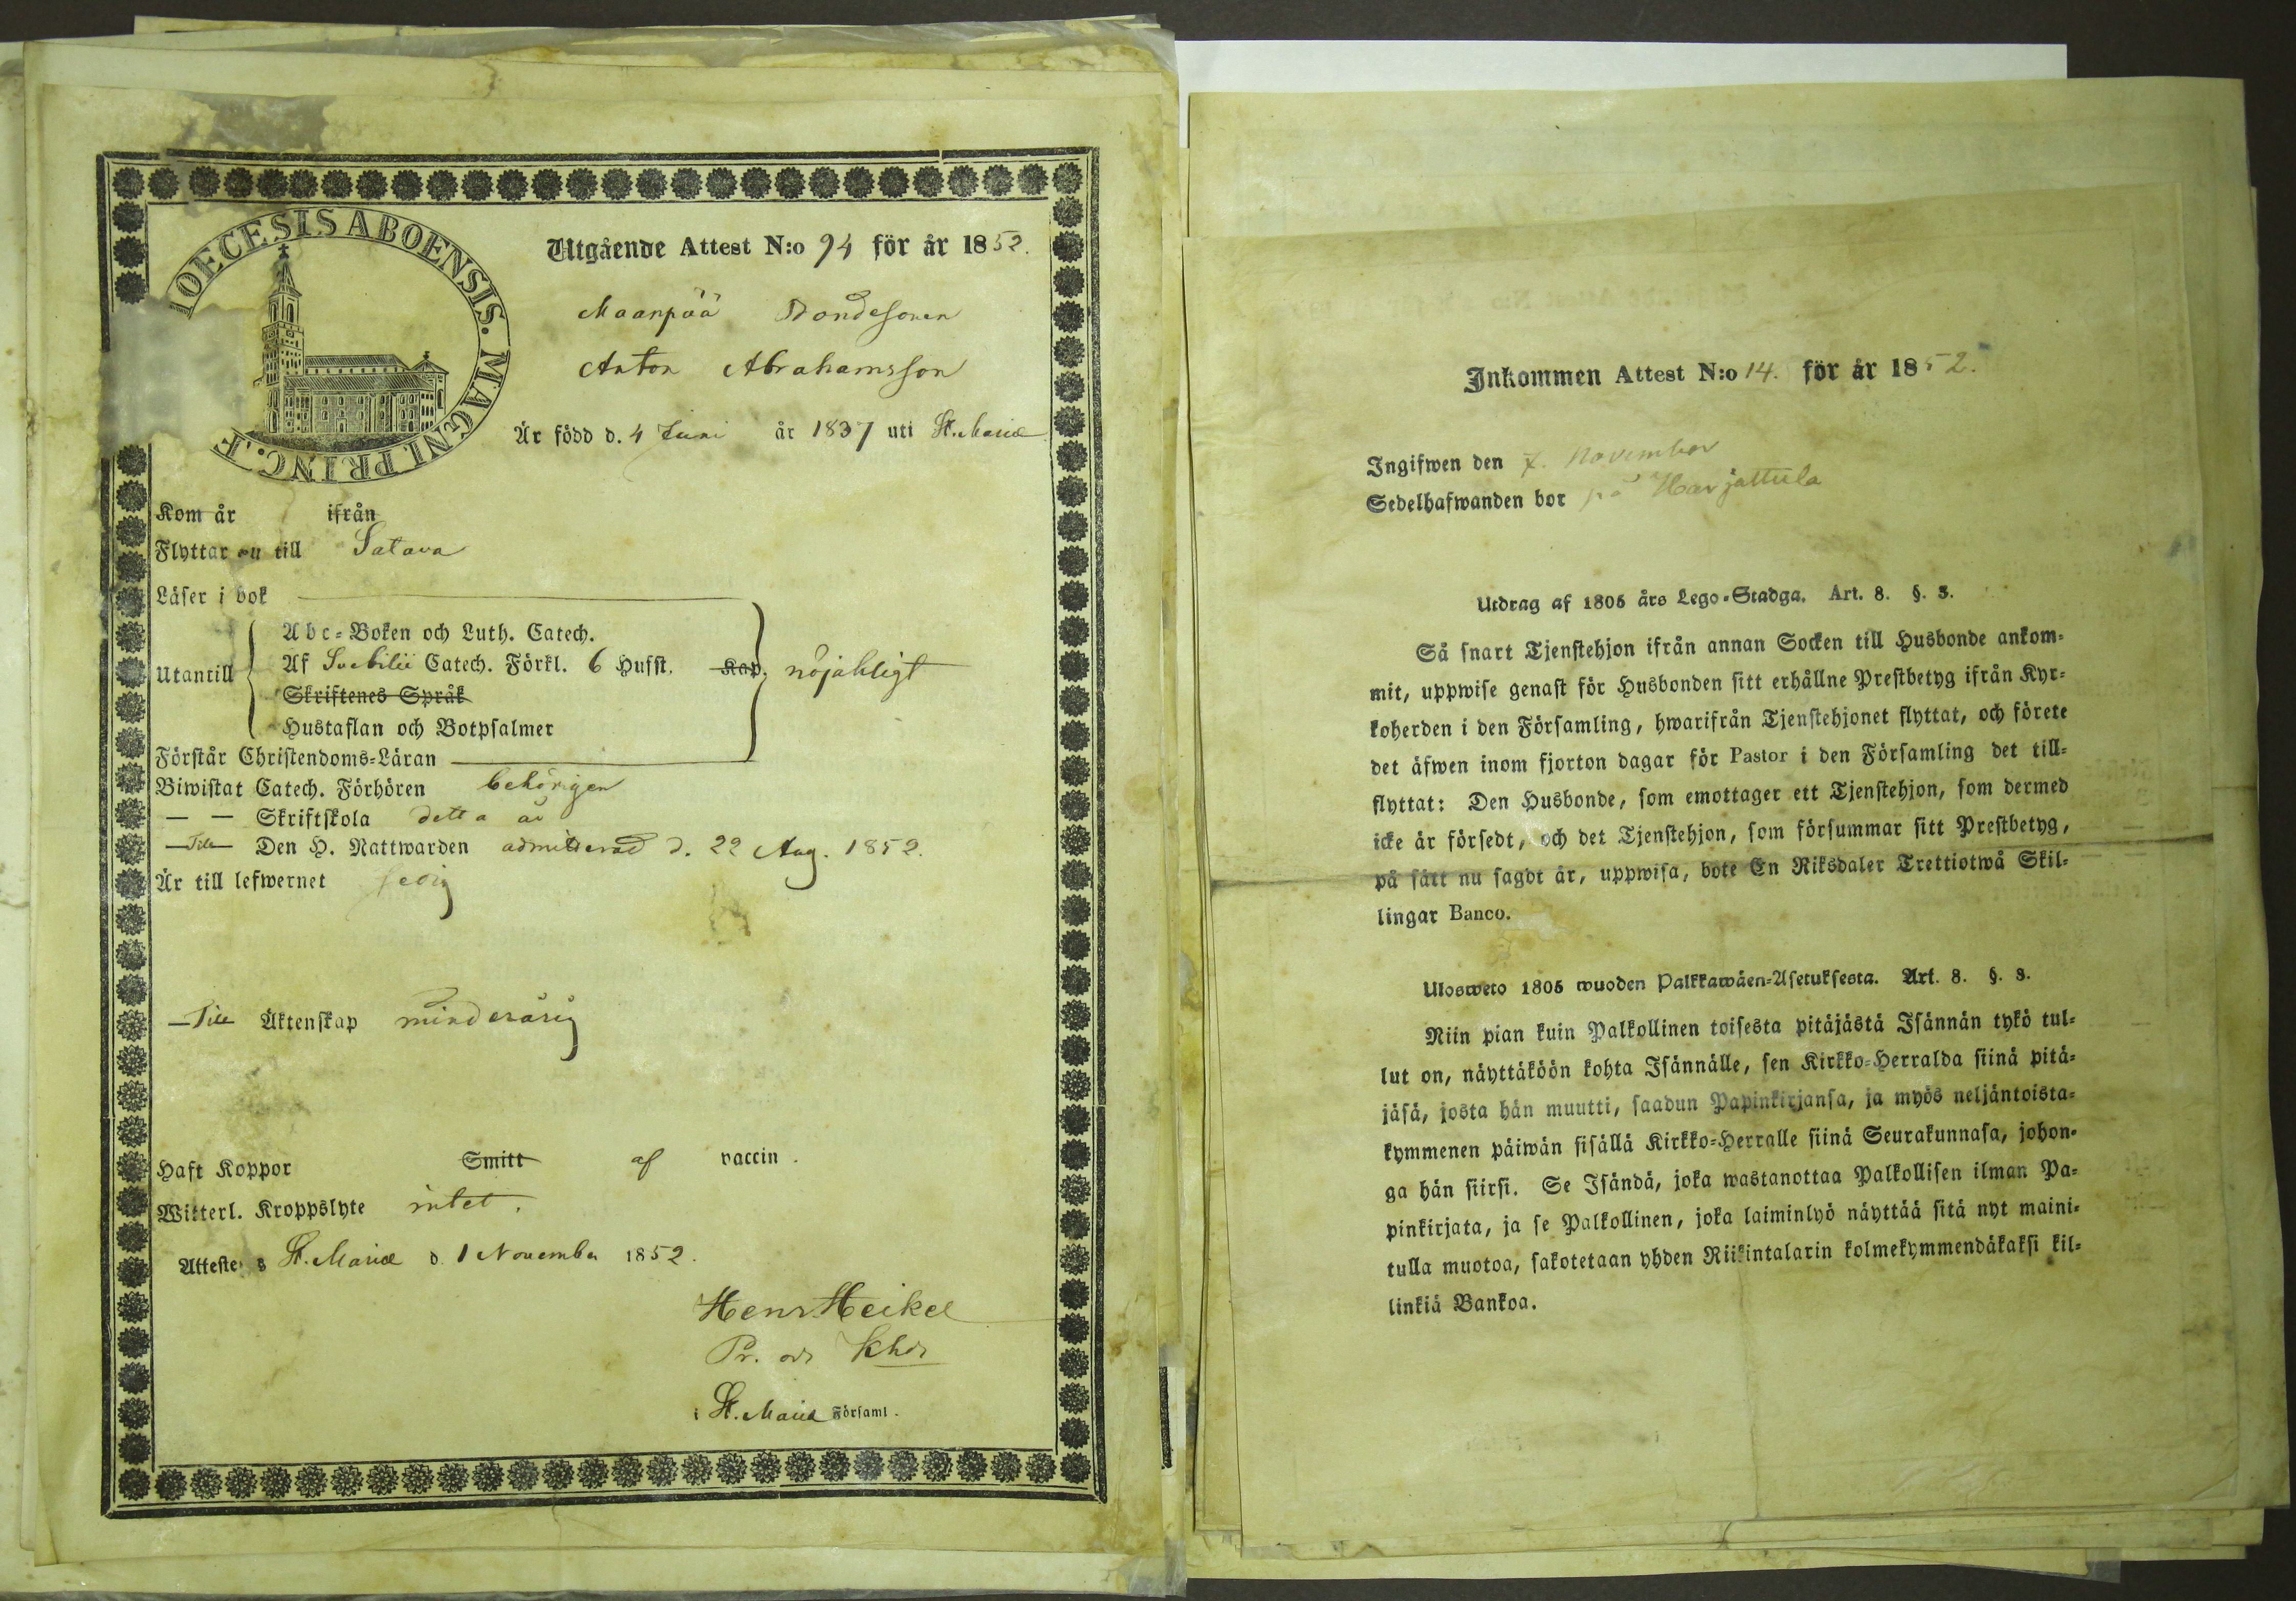 IOECESIS ABOENSIS. MAGNI. PRINC. F.
Utgående Attest N:o 94 för år 1852.
Maanpää Bondesonen
Anton Abrahamsson
Är född d. 4 Juni år 1837 uti St. Mariæ
Kom år ifrån
Flyttar nu till Satava
Läser i bok
Utantill
Abc-Boken och Luth. Catech.
Af Svebilii Catech. Förkl. 6 Hufst. Kap. nöjaktigt
Skriftenes Språk
Hustaflan och Botpsalmer
Förstår Christendoms-Läran
Biwistat Catech. Förhören behörigen
— — Skriftskola detta år
— Till Den H. Nattwarden admitterad d. 22 Aug. 1852.
Är till lefwernet sedig
— Till Äktenskap minderårig
Haft Koppor Smitt af vaccin.
Witterl. Kroppslyte intet.
Attesteras St. Mariæ d. 1 November 1852.
Henr Heikel
Pr. och Khde
i St. Mariæ Församl.
Inkommen Attest N:o 14. för år 1852.
Ingifwen den 7. November
Sedelhafwanden bor på Harjattula
Utdrag af 1805 års Lego-Stadga. Art. 8. §. 3.
Så snart Tjenstehjon ifrån annan Socken till Husbonde ankom-
mit, uppwise genast för Husbonden sitt erhållne Prestbetyg ifrån Kyr-
koherden i den Församling, hwarifrån Tjenstehjonet flyttat, och förete
det äfwen inom fjorton dagar för Pastor i den Församling det till-
flyttat: Den Husbonde, som emottager ett Tjenstehjon, som dermed
icke är försedt, och det Tjenstehjon, som försummar sitt Prestbetyg,
på sätt nu sagdt är, uppwisa, bote En Riksdaler Trettiotwå Skil-
lingar Banco.
Ulosweto 1805 wuoden Palkkawäen-Asetuksesta. Art. 8. §. 3.
Niin pian kuin Palkollinen toisesta pitäjästä Isännän tykö tul-
lut on, näyttäköön kohta Isännälle, sen Kirkko-Herralda siinä pitä-
jäsä, josta hän muutti, saadun Papinkirjansa, ja myös neljäntoista-
kymmenen päiwän sisällä Kirkko-Herralle siinä Seurakunnasa, johon-
ga hän siirsi. Se Isändä, joka wastanottaa Palkollisen ilman Pa-
pinkirjata, ja se Palkollinen, joka laiminlyö näyttää sitä nyt maini-
tulla muotoa, sakotetaan yhden Riikintalarin kolmekymmendäkaksi kil-
linkiä Bankoa.